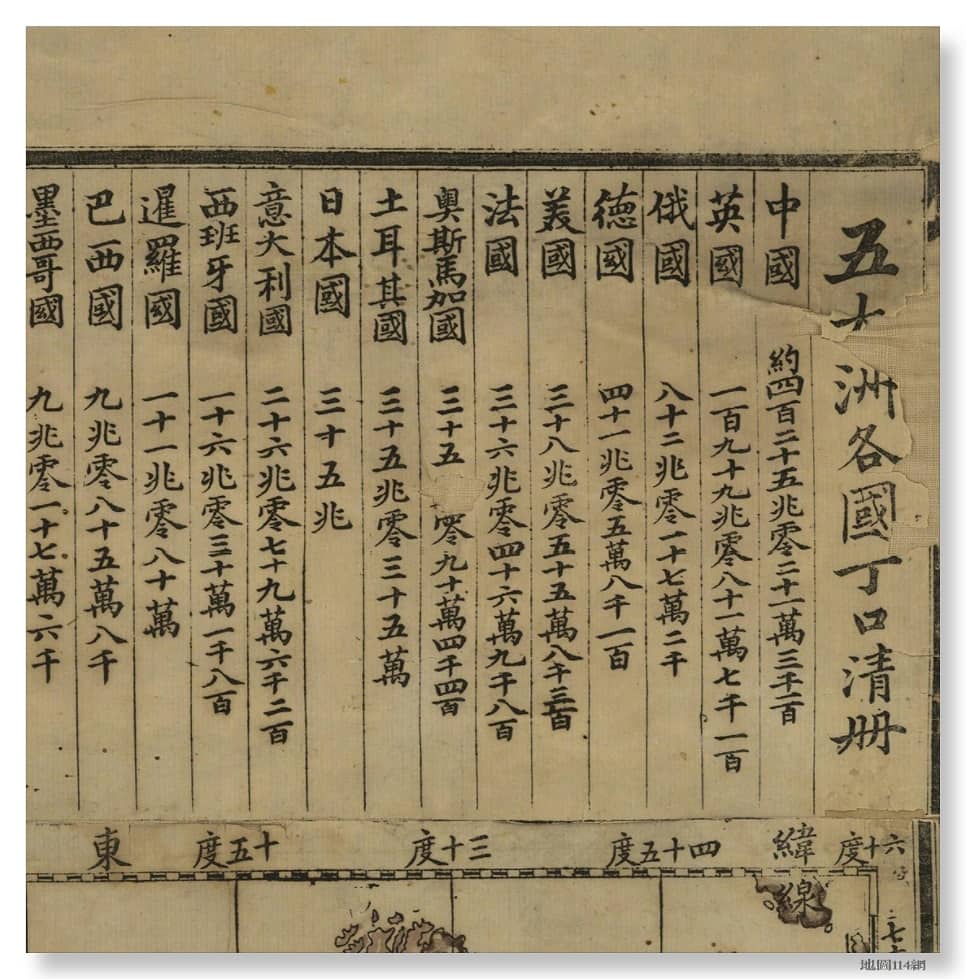 五大洲各國丁口清册
中國 約四百二十五兆零二十一萬三千二百
英國 一百九十九兆零八十一萬七千一百
俄國 八十二兆零一十七萬二千
德國 四十一兆零五萬八千一百
美國 三十八兆零五十五萬八千三百
法國 三十六兆零四十六萬九千八百
奥斯馬加國 三十五 零九十萬四千四百
土耳其國 三十五兆零三十五萬
日本國 三十五兆
意大利國 二十六兆零七十九萬六千二百
西班牙國 一十六兆零三十萬一千八百
暹羅國 一十一兆零八十萬
巴西國 九兆零八十五萬八千
墨西哥國 九兆零一十七萬六千
六十度 緯線 四十五度 三十度 十五度 東
地圖114網